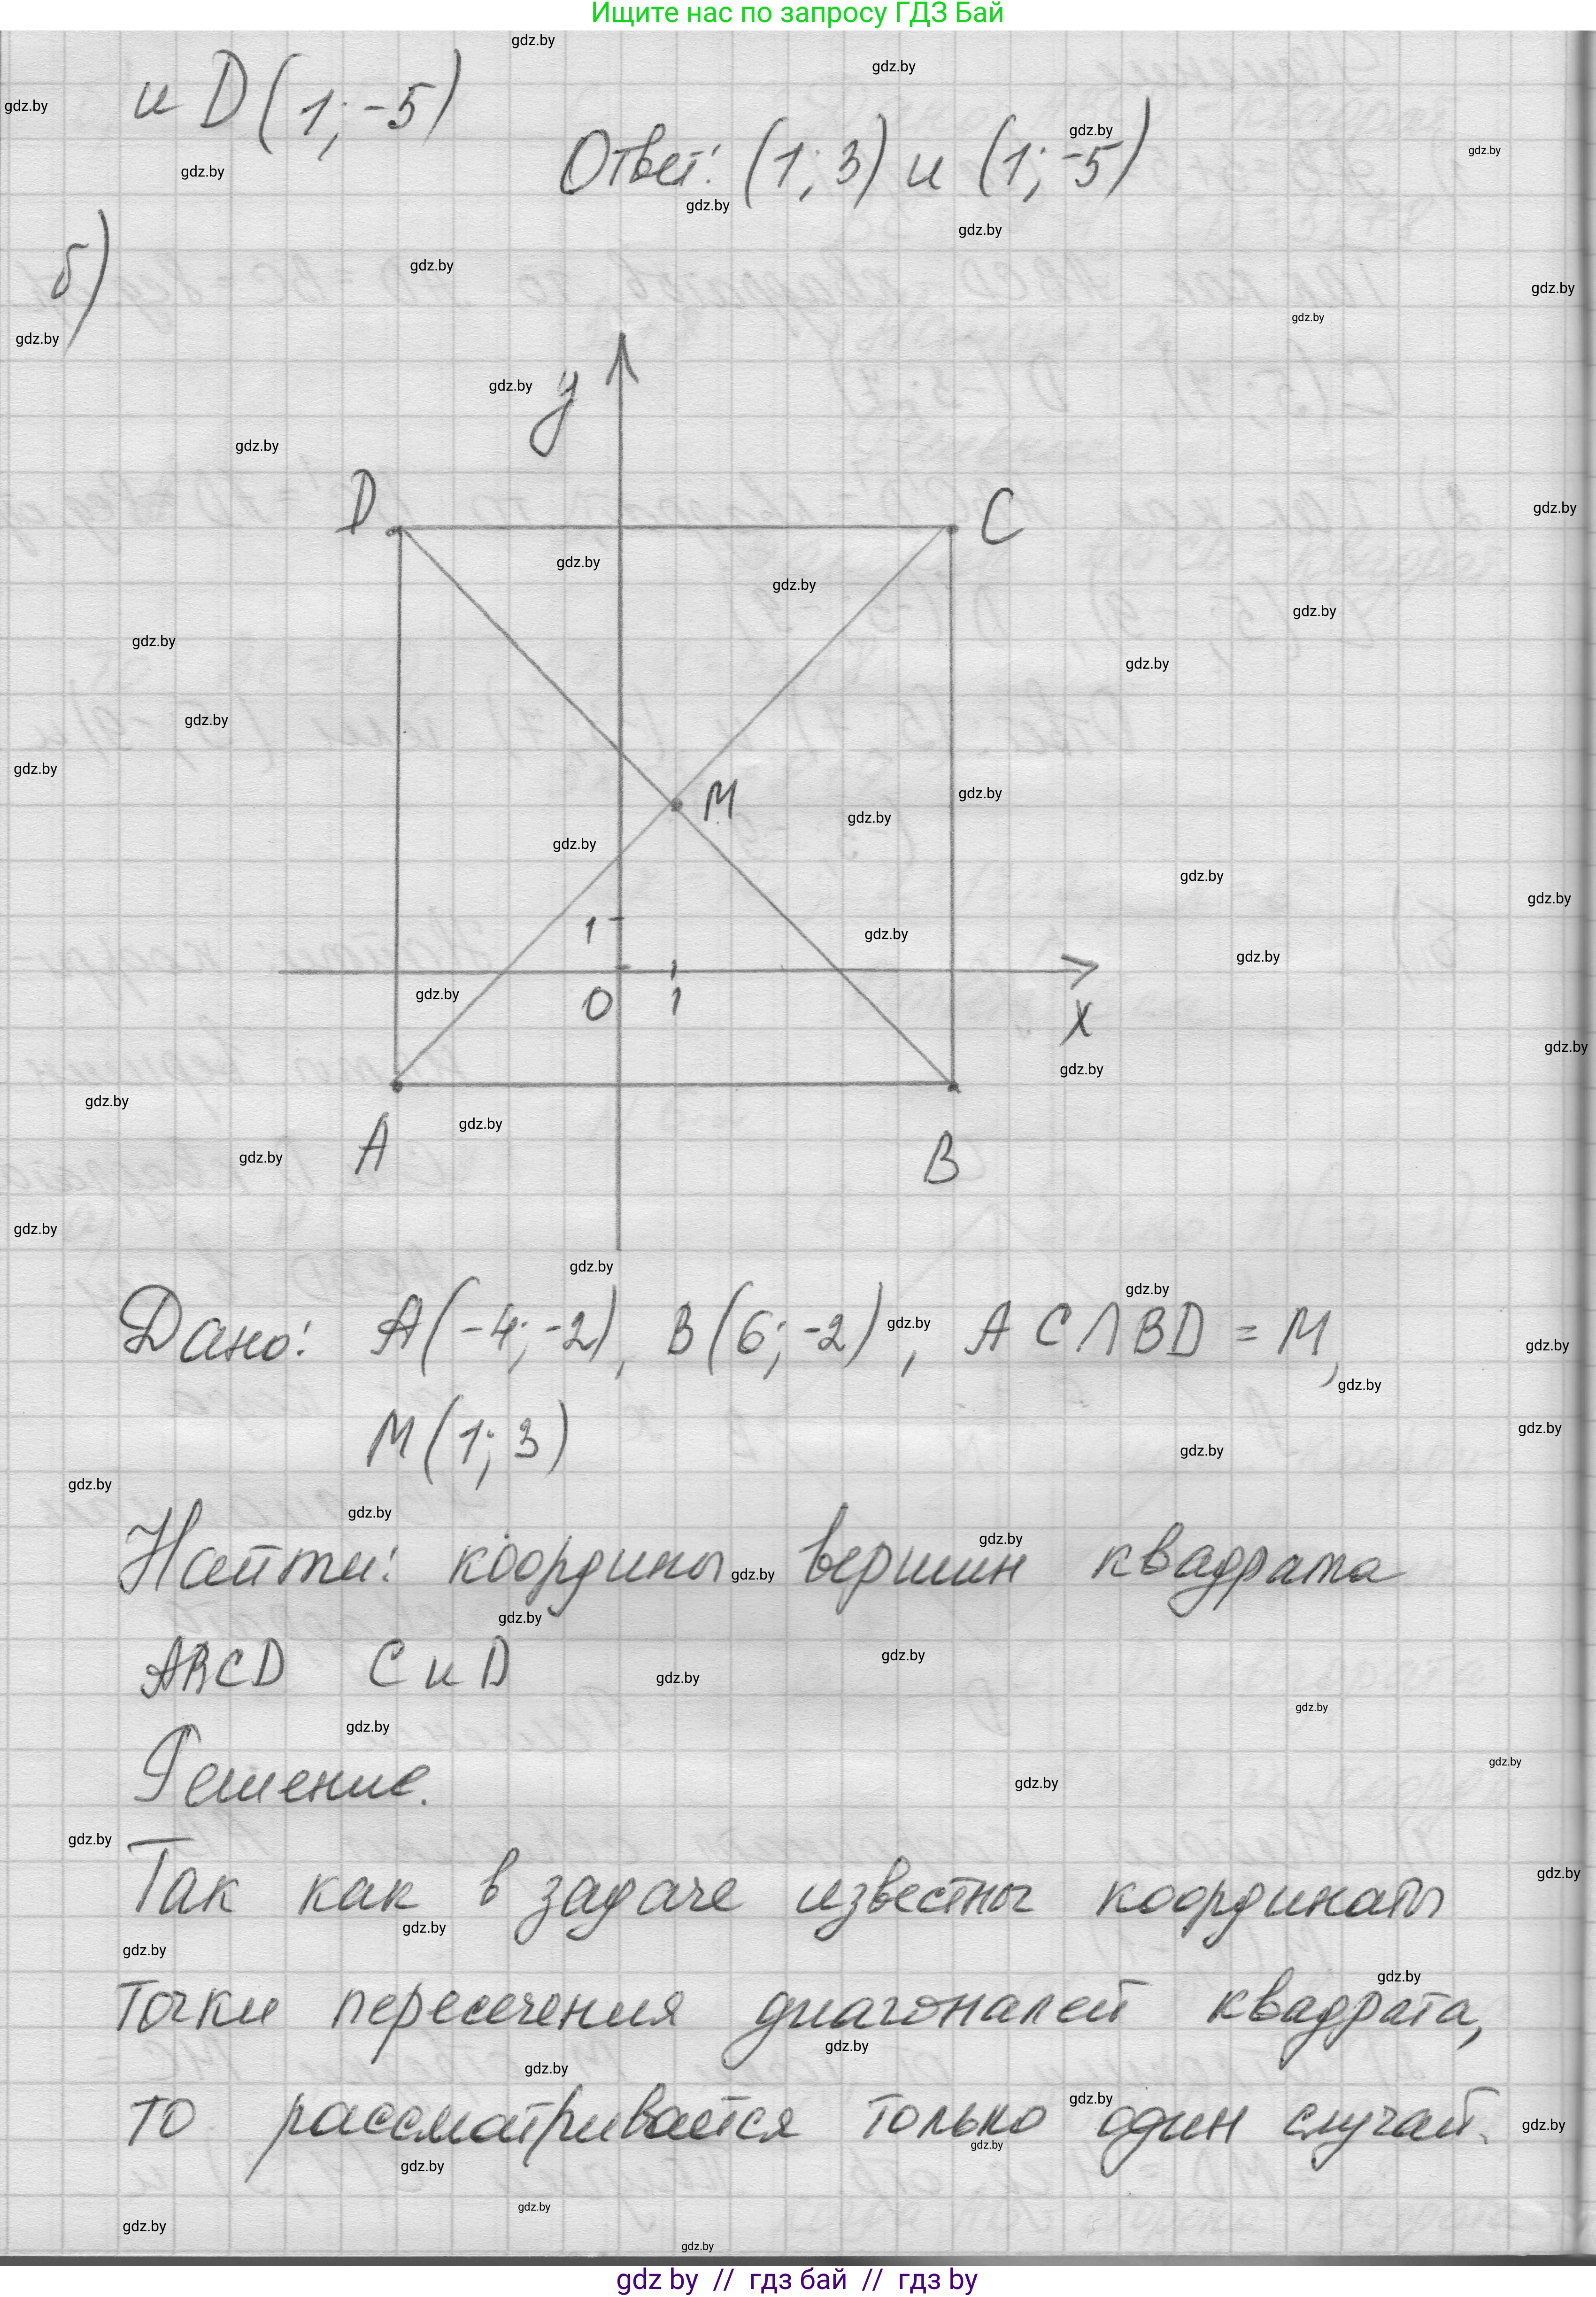 Ищите нас по запросу ГДЗ Бай
и D(1; -5)
Ответ: (1; 3) и (1; -5)
б)
y
D
C
M
1
0
1
x
A
B
Дано: A(-4; -2), B(6; -2), AC∩BD = M,
M(1; 3)
Найти: координы вершин квадрата
ABCD C и D
Решение.
Так как в задаче известны координаты
точки пересечения диагоналей квадрата,
то рассматривается только один случай.
gdz by // гдз бай // гдз by